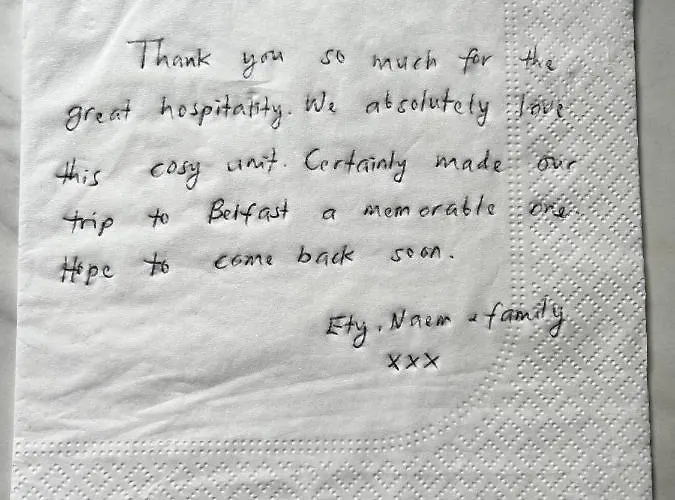 Thank you so much for the
great hospitality. We absolutely love
this cosy unit. Certainly made our
trip to Belfast a memorable one.
Hope to come back soon.
Ety, Naem & family
xxx